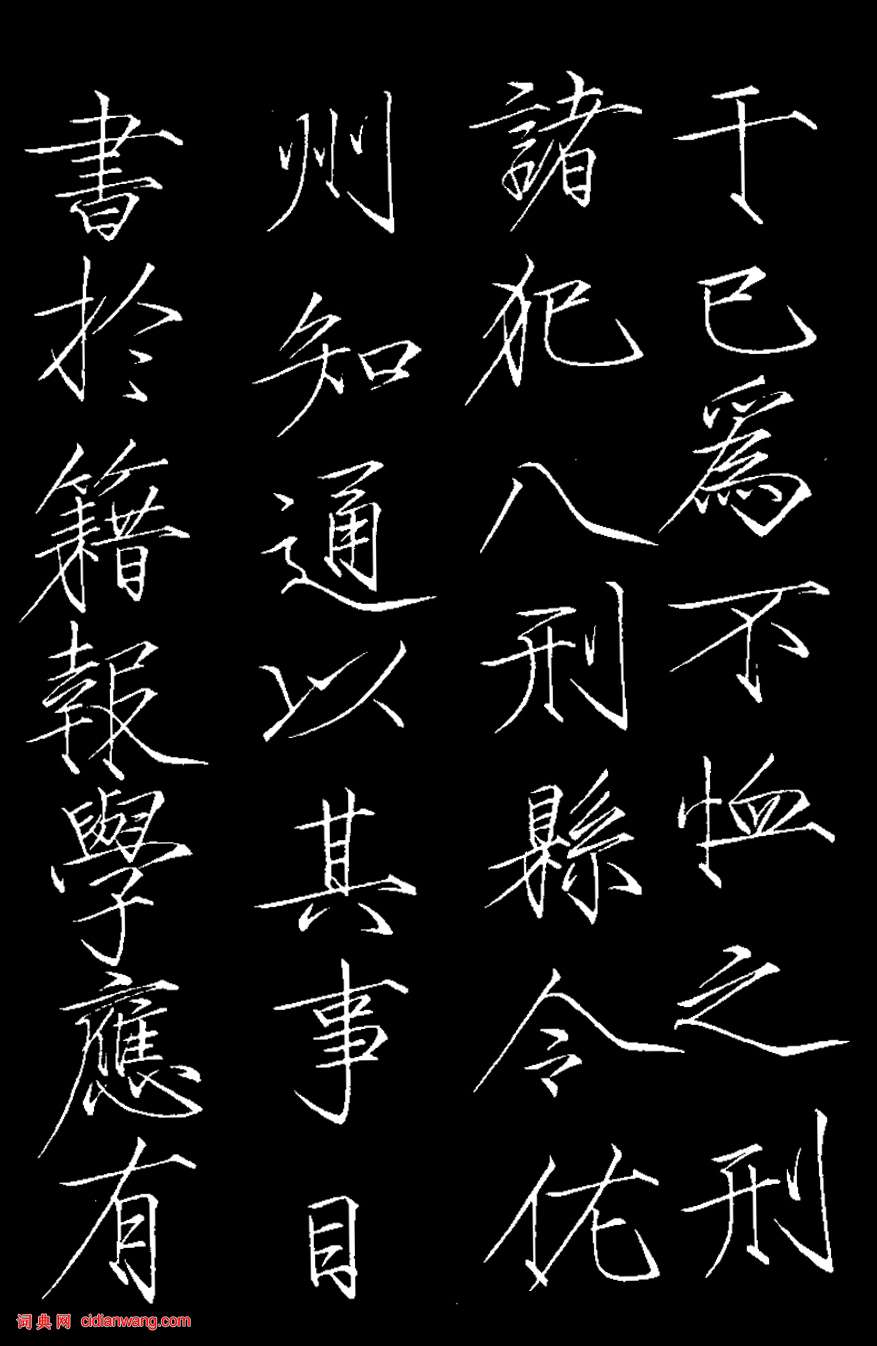 干已為不恤之刑
諸犯八刑縣令佐
州知通以其事目
書於籍報學應有
词典网 cidianwang.com